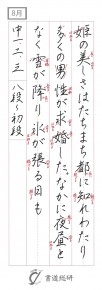 8月
姫の美しさはたちまち都に知れわたり
多くの男性が求婚したなかに夜昼と
なく雪が降り氷が張る日も
中一・二・三 八段〜初段
書道総研